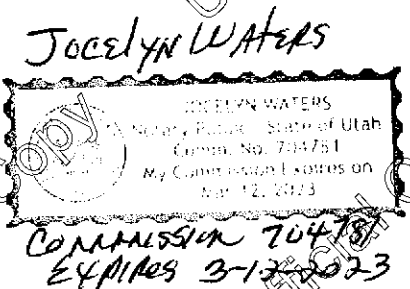 Jocelyn Waters
JOCELYN WATERS
Notary Public State of Utah
Comm. No. 704781
My Commission Expires on
Mar 12, 2023
Commission 704781
Expires 3-12-2023
Copy